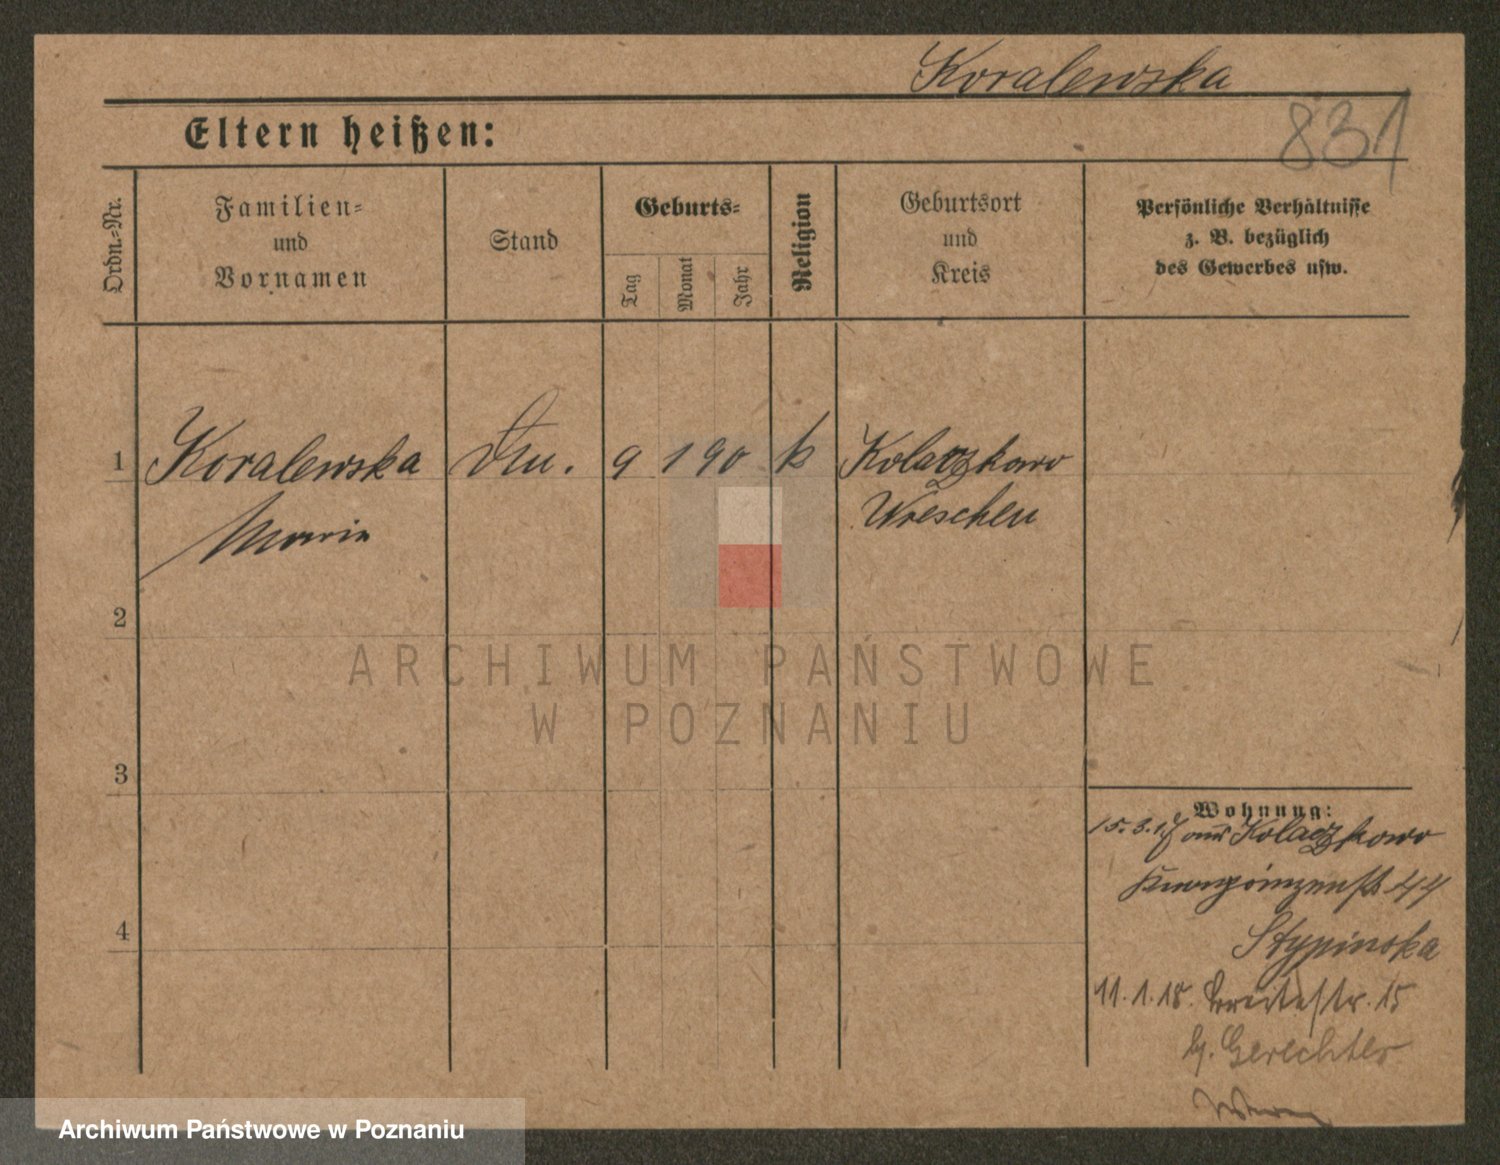 Koralewska
831
Eltern heißen:
Ordn.-Nr.
Familien-
und
Vornamen
Stand
Geburts-
Tag
Monat
Jahr
Religion
Geburtsort
und
Kreis
Persönliche Verhältnisse
z. B. bezüglich
des Gewerbes usw.
1 Koralewska 9 1 90 k Kolaczkowo
Marie Wreschen
2
ARCHIWUM PAŃSTWOWE
W POZNANIU
3
Wohnung:
15.3.17 aus Kolaczkowo
44
4
Stypinska
11.1.18. Breitestr. 15
b. Gerechter
Archiwum Państwowe w Poznaniu